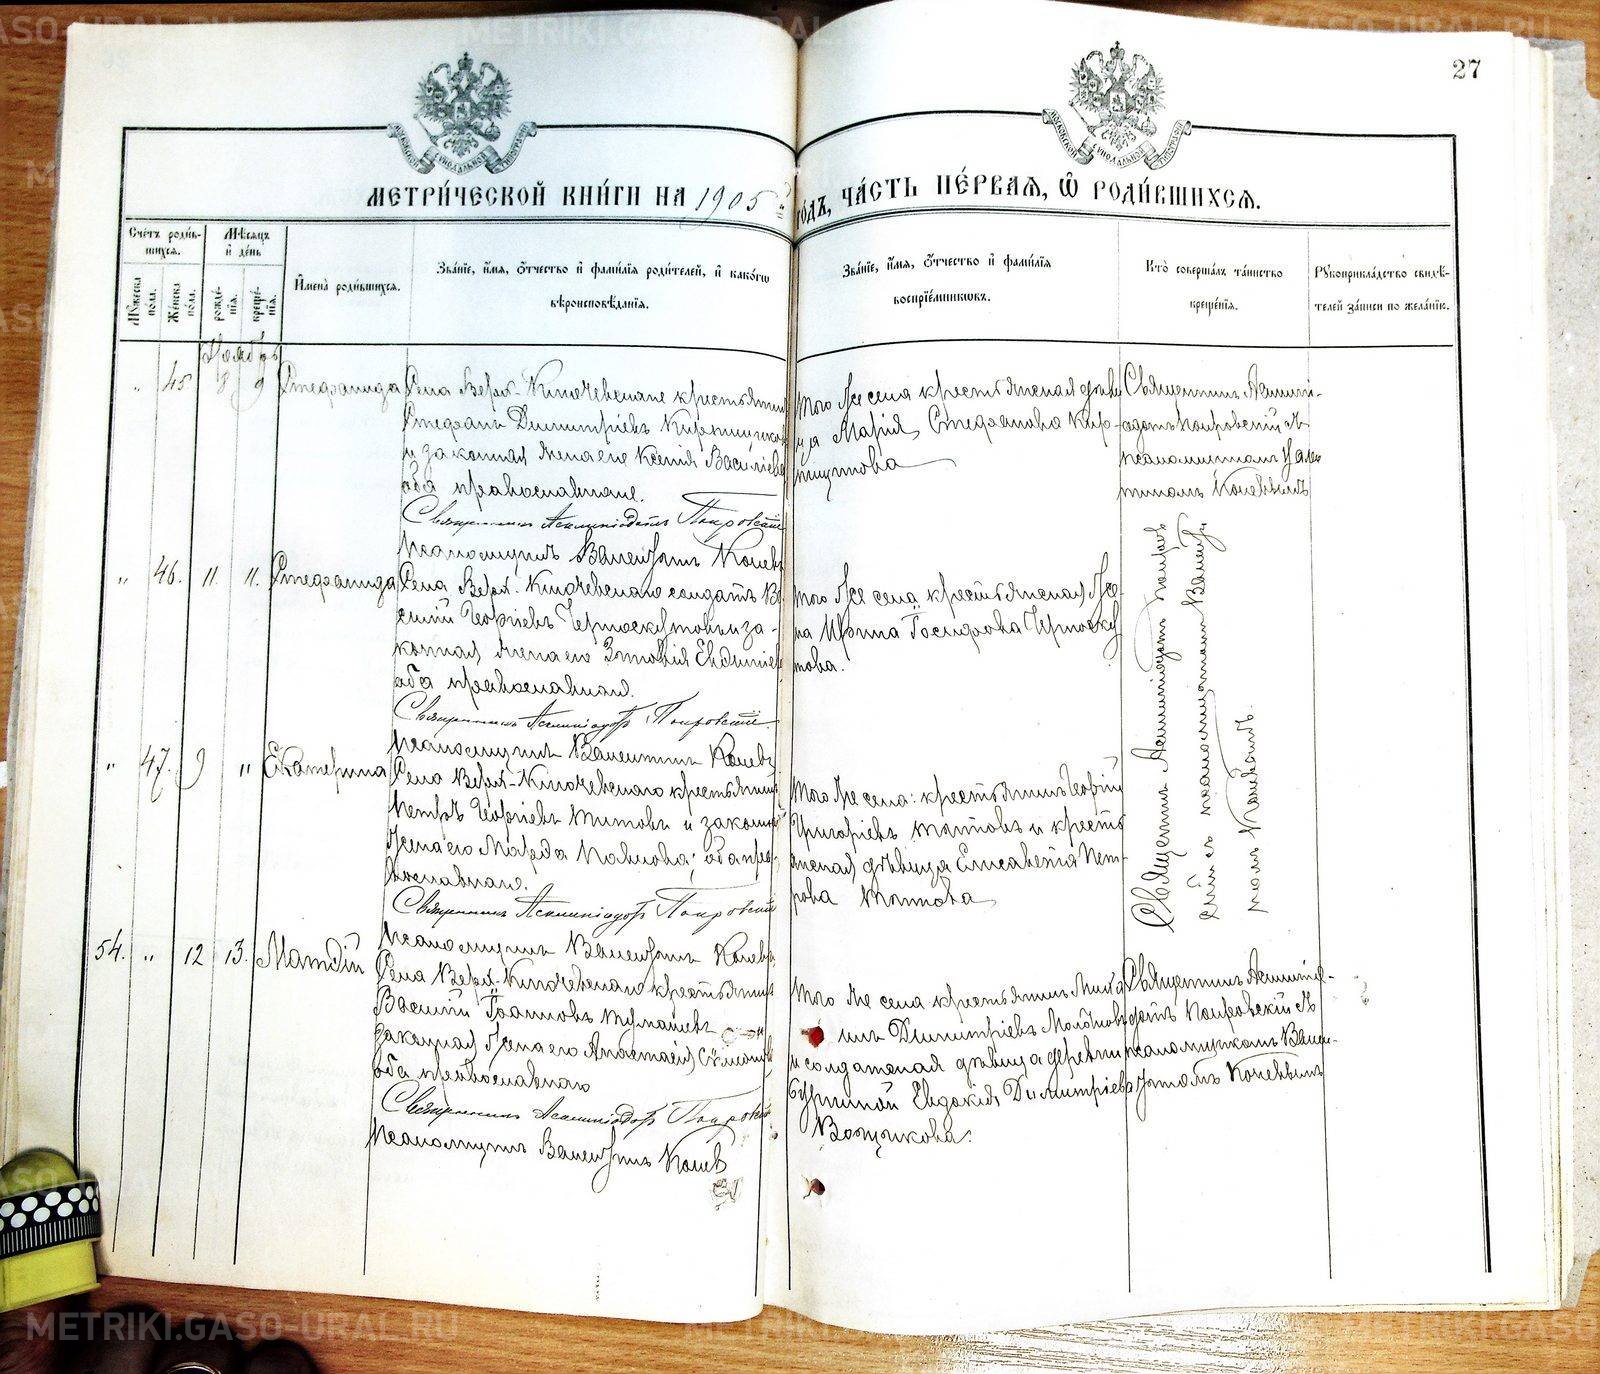 27
МЕТРИ́ЧЕСКОЙ КНИ́ГИ НА 1905 й
ГО́ДЪ, ЧА́СТЬ ПЕ́РВАѦ, Ѿ РОДИ́ВШИХСѦ.
Сче́тъ роди́в-
шихсѧ.
Мѣ́сѧцъ
и҆ де́нь
Мꙋ́жеска
по́ла.
Же́нска
по́ла.
рожде́-
нїѧ.
креще́-
нїѧ.
И҆мена̀ роди́вшихсѧ.
Зва́нїе, и҆́мѧ, ѻ҆́тчество и҆ фами́лїѧ роди́телей, и҆ како́гѡ
вѣроисповѣ́данїѧ.
Зва́нїе, и҆́мѧ, ѻ҆́тчество и҆ фами́лїѧ
воспрїе́мникѡвъ.
Кто̀ соверша́лъ та́инство
креще́нїѧ.
Рꙋкоприкла́дство свидѣ́-
телей за́писи по жела́нїю.
Ноябрь
" 45 8 9 Стефанида
Села Верх-Ключевскаго крестьянинъ
Стефанъ Димитріевъ
и законная жена его Ксенія Василіева
оба православные.
Священникъ Асклипіодотъ Покровскій
Псаломщикъ Валентинъ Коневъ
того же села крестьянская дѣви-
ца Марія Стефанова Кир-
Священникъ Асклипі-
одотъ Покровскій съ
псаломщикомъ Вален-
тиномъ Коневымъ
" 46. 11. 11. Стефанида
Села Верх. Ключевскаго солдатъ Ва-
силій Георгіевъ и за-
конная жена его Евдиміева
оба православные.
Священникъ Асклипіодотъ Покровскій
Псаломщикъ Валентинъ Коневъ
того же села крестьянская же-
на Ирина Іосифова
Священникъ Асклипіодотъ Покров-
скій съ псаломщикомъ Вален-
тиномъ Коневымъ.
" 47. 9 " Екатерина
Села Верх-Ключевскаго крестьянинъ
Петръ Георгіевъ Титовъ и законная
жена его Марфа Павлова; оба пра-
вославные.
Священникъ Асклипіодотъ Покровскій
Псаломщикъ Валентинъ Коневъ
того же села: крестьянинъ Георгій
Григоріевъ Титовъ и кресть-
янская дѣвица Елисавета Пет-
рова Титова
54. " 12 13. Матѳій
Села Верх-Ключевскаго крестьянинъ
Василій Іоанновъ Тулашевъ и
законная жена его Анастасія Симеонова
оба православнаго
Священникъ Асклипіодотъ Покровскій
Псаломщикъ Валентинъ Коневъ
того же села крестьянинъ Миха-
илъ Димитріевъ
и солдатская дѣвица деревни
Евдокія Димитріева
Вощикова.
Священникъ Асклипіо-
дотъ Покровскій съ
псаломщикомъ Вален-
тиномъ Коневымъ